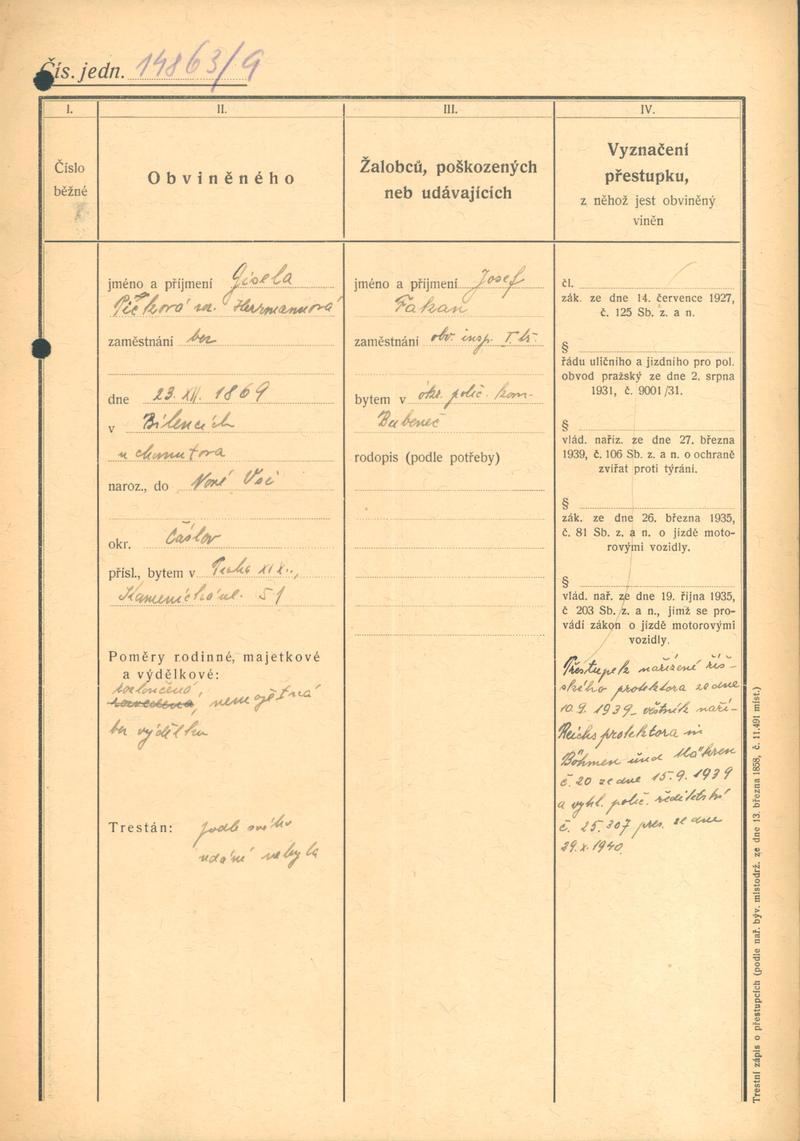 Čís. jedn. 14863/9
I.
Číslo
běžné
II.
Obviněného
jméno a příjmení Gisela
Pičková roz. Herrmannová
zaměstnání bez
dne 23. XII. 1869
v Bílencích
u Chomutova
naroz., do Nové Vsi
okr. Čáslav
přísl., bytem v Praha XIX.,
Kamenická ul. 51
Poměry rodinné, majetkové
a výdělkové:
rozloučená,
rozvedená, nemajetná
bez výdělku
Trestán: podle svého
udání nebyla
III.
Žalobců, poškozených
neb udávajících
jméno a příjmení Josef
zaměstnání obv. insp. I. tř.
bytem v okr. polic. kom-
Bubeneč
rodopis (podle potřeby)
IV.
Vyznačení
přestupku,
z něhož jest obviněný
viněn
čl.
zák. ze dne 14. července 1927,
č. 125 Sb. z. a n.
§
řádu uličního a jízdního pro pol.
obvod pražský ze dne 2. srpna
1931, č. 9001/31.
§
vlád. naříz. ze dne 27. března
1939, č. 106 Sb. z. a n. o ochraně
zvířat proti týrání.
§
zák. ze dne 26. března 1935,
č. 81 Sb. z. a n. o jízdě moto-
rovými vozidly.
§
vlád. nař. ze dne 19. října 1935,
č 203 Sb. z. a n., jímž se pro-
vádí zákon o jízdě motorovými
vozidly.
Přestupek nařízení říš-
ského protektora ze dne
10.9. 1939 - věstník naří-
Reichsprotektora in
Böhmen und Mähren
č. 20 ze dne 15.9. 1939
a vyhl. polic. ředitelství
č. 25.307 pres. ze dne
29.X.1940.
Trestní zápis o přestupcích (podle nař. býv. místodrž. ze dne 13. března 1858, č. 11.491 míst.)